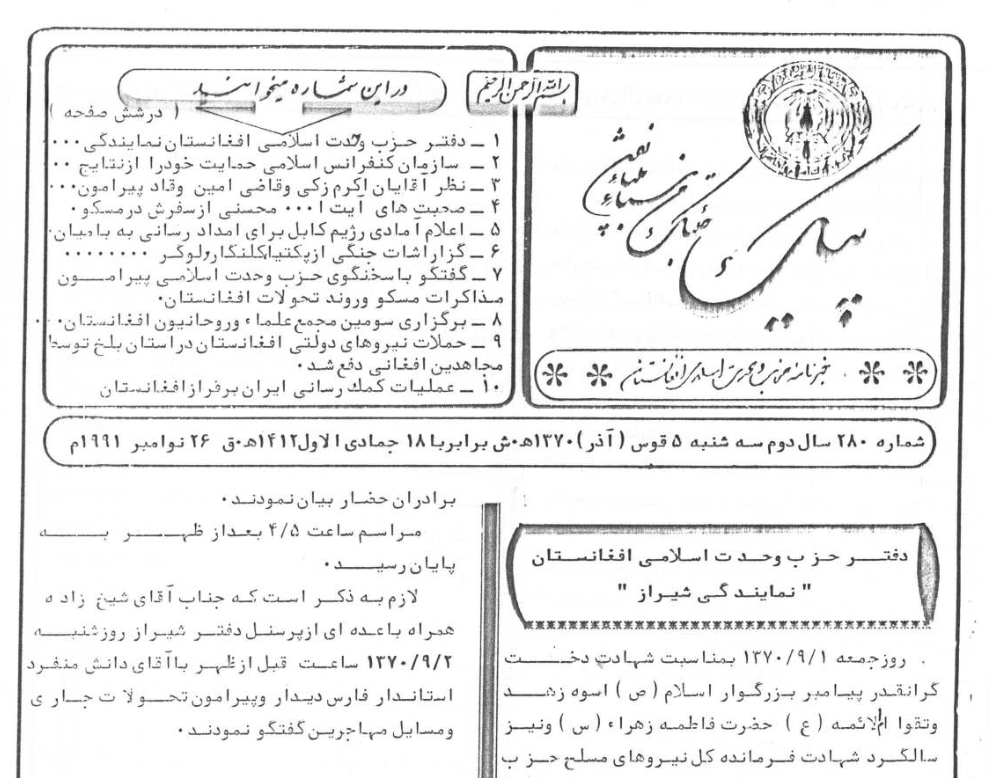 بسم الله الرحمن الرحیم
پیک
خبرنامه حزب وحدت اسلامی افغانستان
در این شماره میخوانید
( درشش صفحه )
۱ ــ دفتر حزب وحدت اسلامی افغانستان نمایندگی۰۰۰
۲ ــ سازمان کنفرانس اسلامی حمایت خودرا ازنتایج ۰۰
۳ ــ نظر آقایان اکرم زکی وقاضی امین وقاد پیرامون۰۰۰
۴ ــ صحبت های آیت ا ۰۰۰ محسنی ازسفرش درمسکو۰
۵ ــ اعلام آمادی رژیم کابل برای امداد رسانی به بامیان۰
۶ ــ گزاراشات جنگی ازپکتیا،کلنگار،ولوگر ۰۰۰۰۰۰۰۰
۷ ــ گفتگو باسخنگوی حزب وحدت اسلامی پیرامــون
مذاکرات مسکو وروند تحولات افغانستان۰
۸ ــ برگزاری سومین مجمع علماء وروحانیون افغانستان۰۰۰
۹ ــ حملات نیروهای دولتی افغانستان دراستان بلخ توسط
مجاهدین افغانی دفع شد۰
۱۰ ــ عملیات کمك رسانی ایران برفرازافغانستان
شماره ۲۸۰ سال دوم سه شنبه ۵ قوس ( آذر ) ۱۳۷۰ه‍۰ش برابربا ۱۸ جمادی الاول۱۴۱۲ه‍۰ق ۲۶ نوامبر ۱۹۹۱م
دفتــر حز ب وحـد ت اسلامی افغانستان
" نمایند گی شیراز "
روزجمعه ۱۳۷۰/۹/۱ بمناسبت شهادت دخــت
گرانقدر پیامبر بزرگوار اسلام ( ص ) اسوه زهــد
وتقوا ام‌الائمه ( ع ) حضرت فاطمه زهراء ( س ) ونیـز
سالگـرد شهادت فـرمانده کل نیـروهای مسلح حـز ب
برادران حضار بیان نمودند۰
مراسم ساعت ۴/۵ بعداز ظهــر بــه
پایان رسیــد۰
لازم به ذکر است که جناب آقای شیخ زاد ه
همراه باعده ای ازپرسنل دفتـر شیراز روزشنبــه
۱۳۷۰/۹/۲ ساعـت قبل ازظهر باآقای دانش منفرد
استاندار فارس دیدار وپیرامون تحــولا ت جـار ی
ومسایل مهاجرین گفتگو نمودند۰